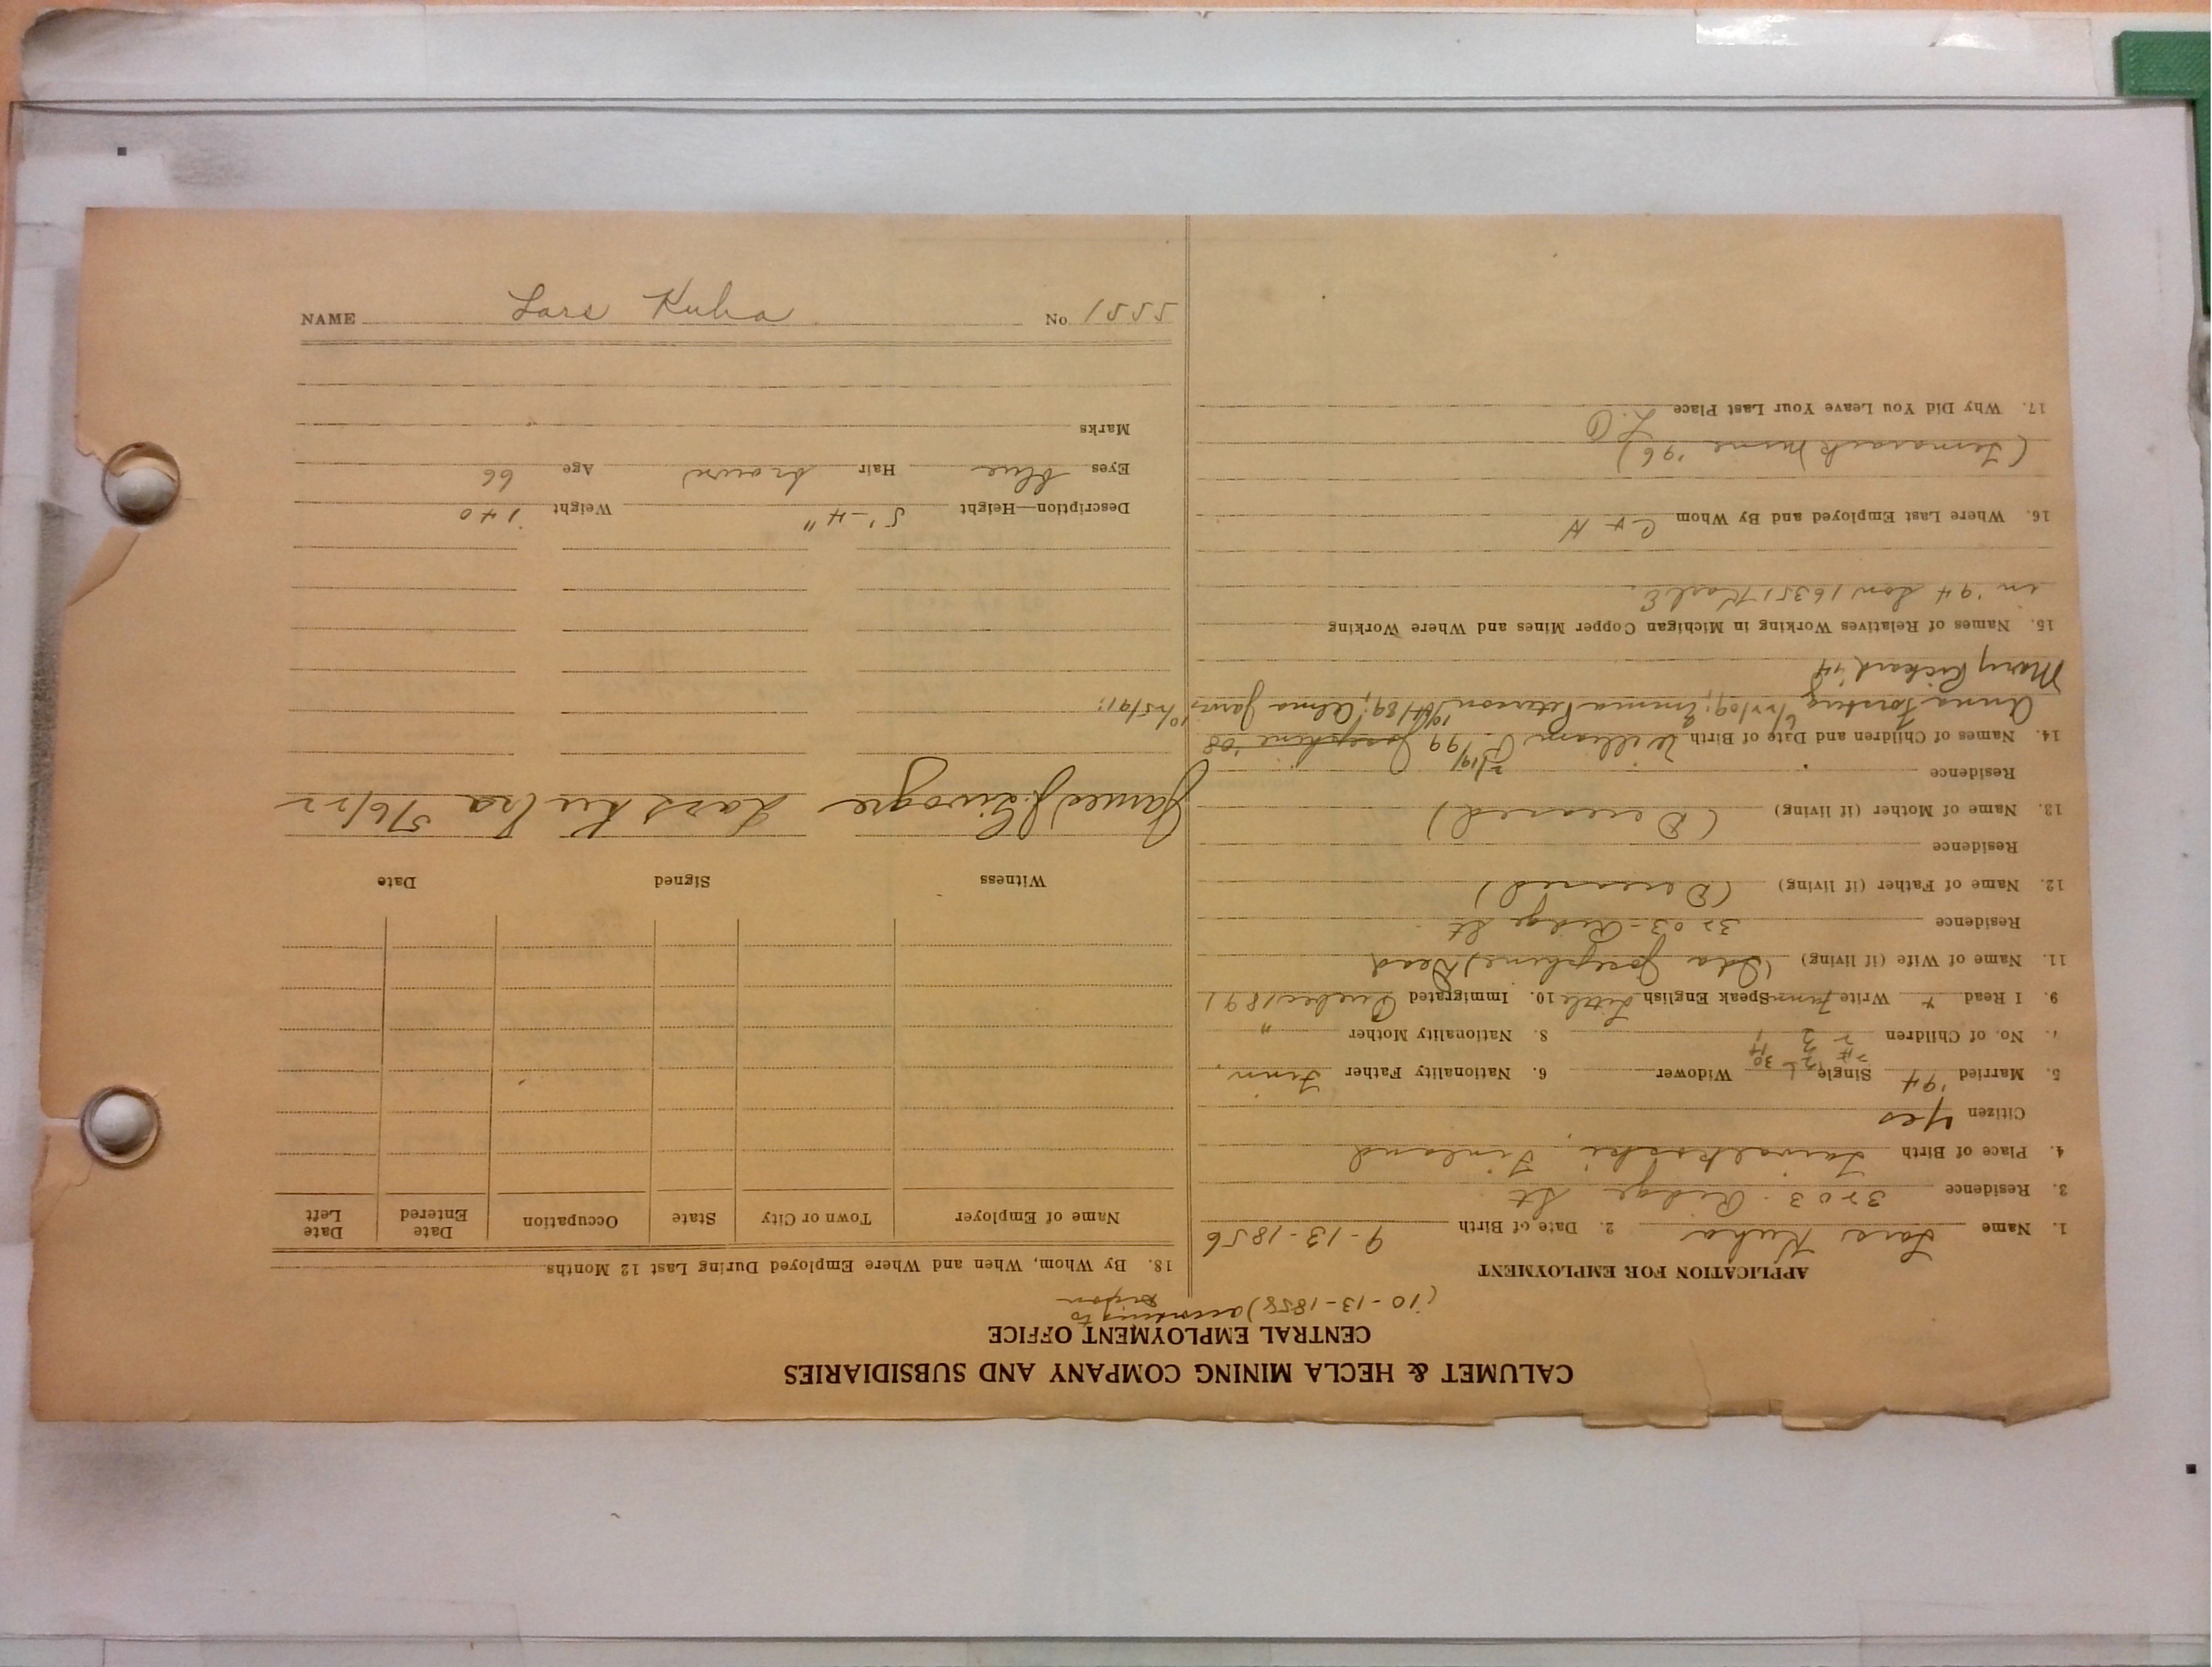 CALUMET & HECLA MINING COMPANY AND SUBSIDIARIES
CENTRAL EMPLOYMENT OFFICE
(10-13-1858) according to
APPLICATION FOR EMPLOYMENT
1. Name Lars Kuha 2. Date of Birth 9-13-1856
3. Residence 3203 Ridge St
4. Place of Birth Taivalkoski, Finland
Citizen Yes
5. Married '94 Single Widower 6. Nationality Father Finn
No. of Children 8. Nationality Mother "
9. I Read + Write Finn Speak English Little 10. Immigrated Quebec 1891
11. Name of Wife (if living) (Ida Josephine) Dead
Residence 3203-Ridge St
12. Name of Father (if living) (Deceased)
Residence
13. Name of Mother (if living) (Deceased)
Residence
14. Names of Children and Date of Birth William 99 Josephine '08
Anna Forsberg Emma Peterson 89; Alma 10/25/91;
Mary Rickard
15. Names of Relatives Working in Michigan Copper Mines and Where Working
in '94 Son 16351 Karl E.
16. Where Last Employed and By Whom C + H
(Tamarack Mine '96)
17. Why Did You Leave Your Last Place L.O
18. By Whom, When and Where Employed During Last 12 Months
Name of Employer Town or City State Occupation Date Entered Date Left
Witness Signed Date
Lars Kuha 5/6/22
Description—Height 5'-4" Weight 140
Eyes blue Hair brown Age 66
Marks
NAME Lars Kuha No. 1555